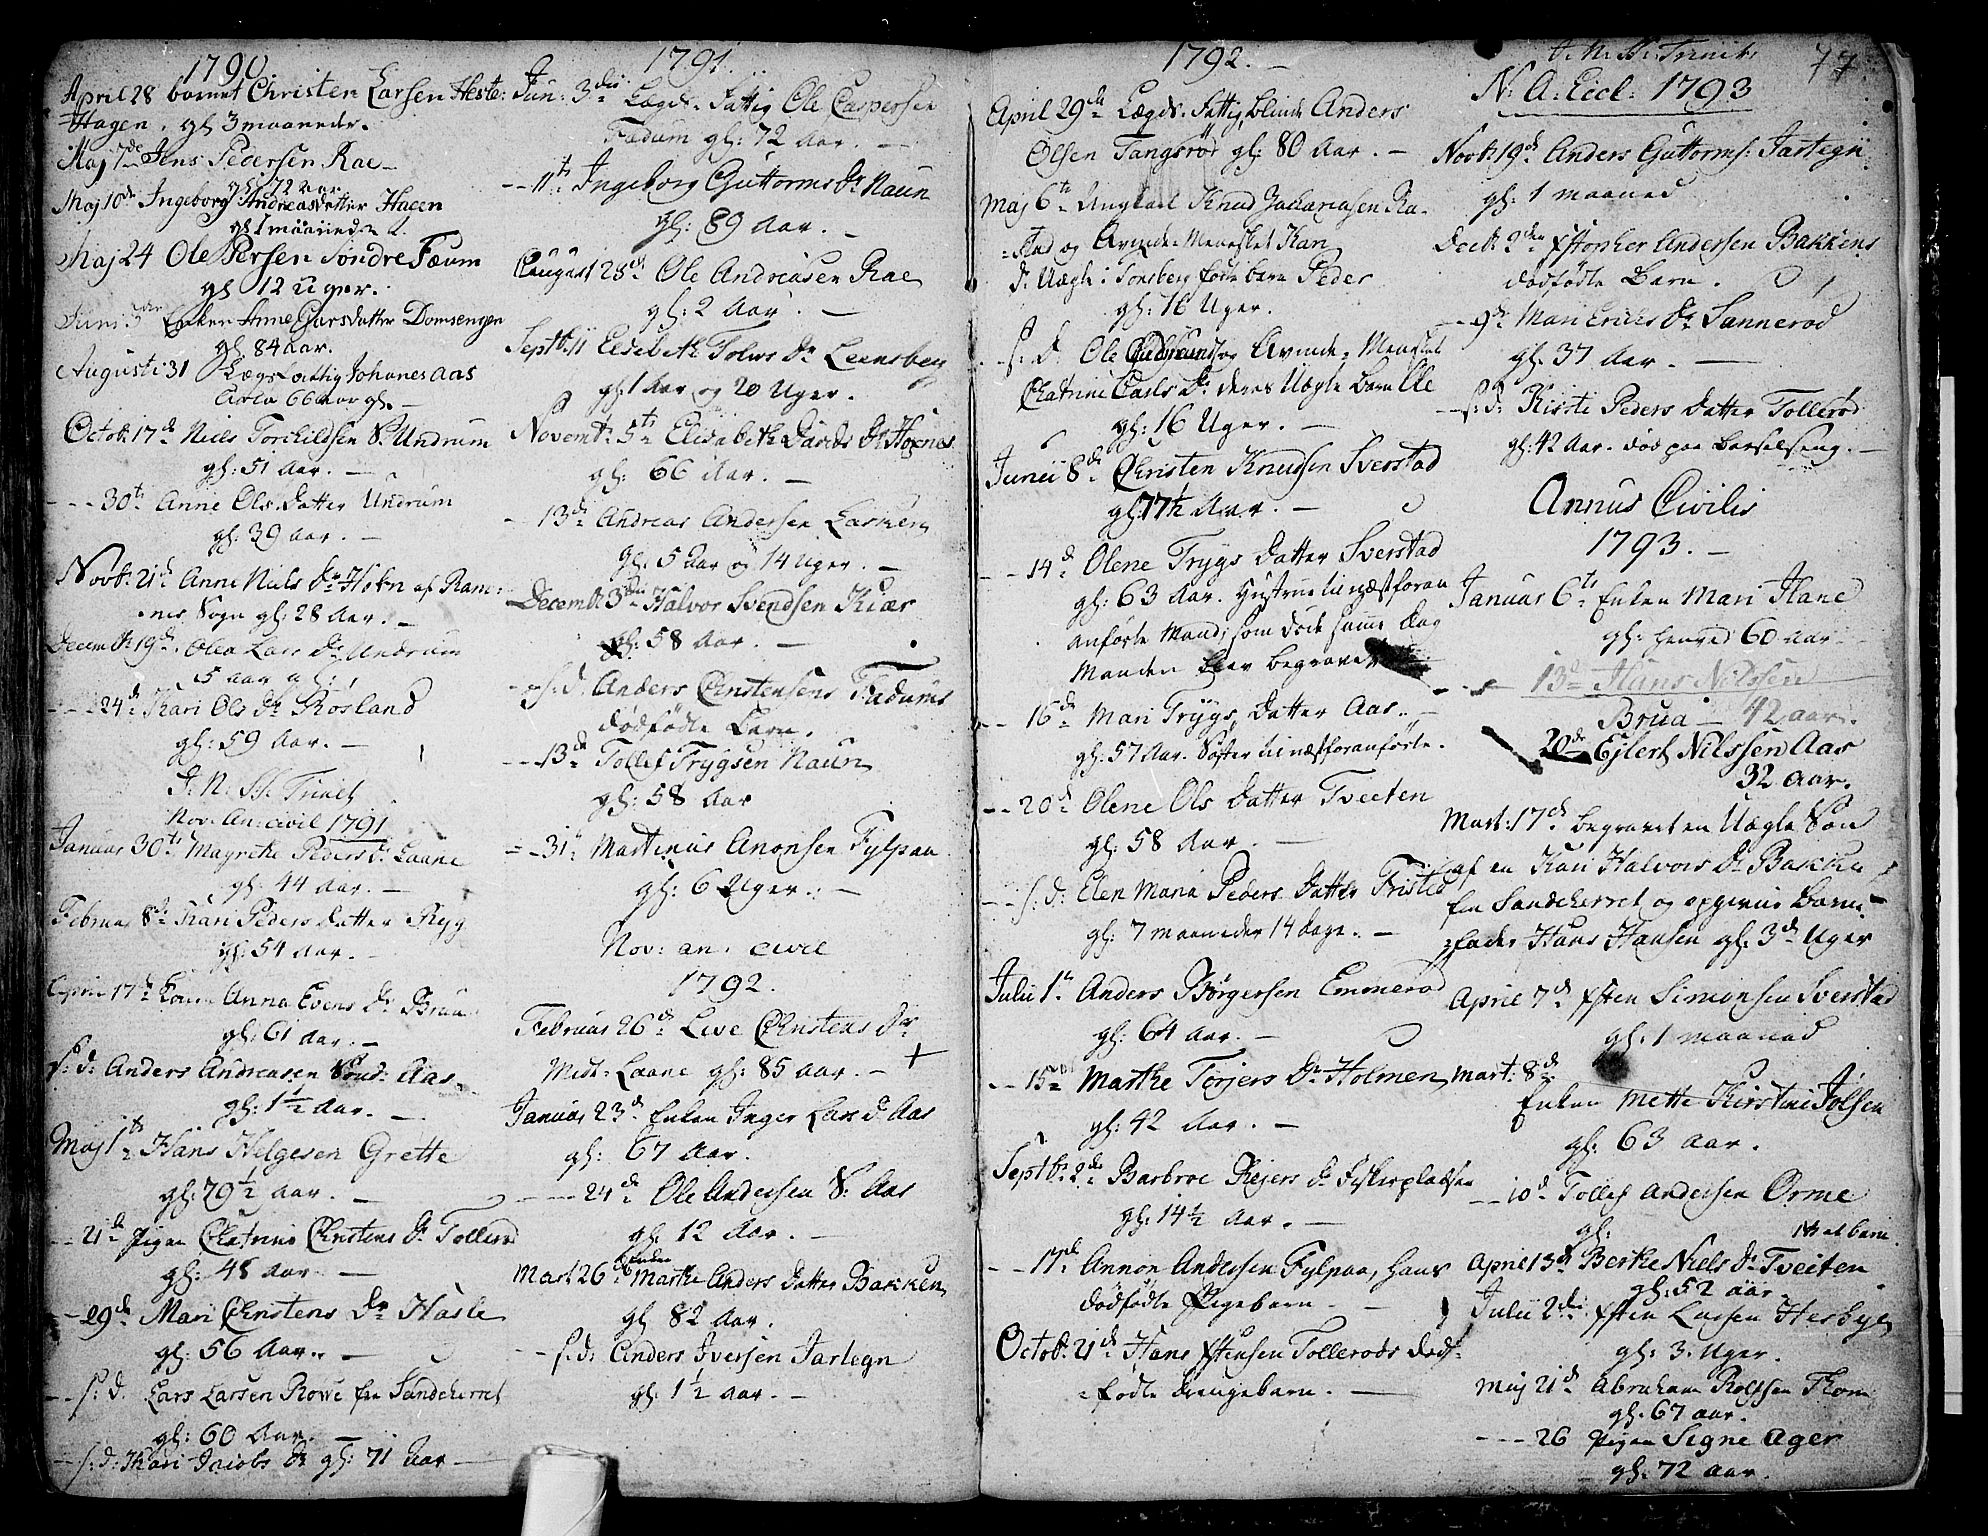 1790
April 28 barnet Christen Larsen Heste-
Hagen. gl: 3 maaneder.
Maj 7de Jens Pedersen Rae
gl: 72 aar
Maj 10de Ingeborg Andreasdatter Hagen
gl: 1 maaned
Maj 24 Ole Persen Søndre Fæum
gl 12 uger.
Junii 3die Enken Anne Garsdatter Domsengen
gl 84 aar.
Augusti 31 Lægs Fattig Johanes Aas
66 aar gl. —
Octob: 17de Niels Torchildsen S: Undrum
gl: 51 Aar. —
- - - 30te Anne Ols Datter Undrum
gl: 39 Aar. —
Novb: 21de Anne Niels Dr af Ram-
nes Sogn gl: 28 Aar. —
Decemb: 19de Olea Lars Dr Undrum
5 aar gl:
- - - 24de Kari Ols Dr Rosland
gl: 59 Aar. —
J. N. SS. Trinit
Nov. An: civil 1791
Januar 30te Magrete Peders Dr Laane
gl: 44 Aar. —
Februar 8de Kari Peders Datter Ryg
gl: 54 Aar. —
April 17de Kone Anna Evens Dr Bruu
gl: 61 Aar. —
s: d: Anders Andreasen Sond: Aas
gl: 1½ Aar. —
Maj 1te Hans Helgesen Grette
gl: 79½ Aar. —
- - 21de Pigen Chatrine Christens Dr Tollerød
gl: 48 Aar —
- - 29de Mari Christens Dr Hasle
gl: 56 Aar. —
- - s: d: Lars Larsen Rowe fra Sandeherret
gl: 60 Aar. —
- s: d: Kari Jacobs Dr gl: 71 Aar —
1791.
Jun: 3die Lægds-Fattig Ole Caspersen
Fadum gl: 72 Aar. —
- - 11te Ingeborg Guttorms Dr Naun
gl: 89 Aar. —
August 28de Ole Andreasen Rae
gl: 2 Aar. —
Septb: 11 Elisabeth Tolvs Dr Leensberg
gl: 1 Aar og 20 Uger.
Novemb: 5te Elisabeth Davids Dr Hognes
gl: 66 Aar. —
- - 13de Andreas Andersen Basken
gl: 5 Aar og 14 Uger. —
Decemb: 3die Halvor Svendsen Kiær
gl: 58 Aar. —
- - s: d: Anders Christensens Fadums
dødfødte Barn.
- - 13de Tollef Trygsen Naun
gl: 58 Aar
- - 31te Martinus Anonsen Fylpaa
gl: 6 Uger. —
Nov: an: civil
1792.
Februar 26de Live Christens Dr
Midt-Laane gl: 85 aar. — +
Januar 23de Enken Inger Lars Dr Aas
gl: 67 Aar.
- - - 24de Ole Andersen S: Aas
gl: 12 Aar. —
Enken
Mart 26 Marthe Anders Datter Bakken
gl 82 Aar.
- - s: d: Anders Iversen Jartegn
gl: 1½ Aar. —
1792. —
April 29de Lægds-Fattig, blinde Anders
Olsen Tangsrød gl: 80 Aar. —
Maj 6te Ungkarl Knud Zachariasen Ra-
stad og Qvinde-Mennesket Kari
Uægte i Tønsberg fødte barn Peder
gl: 16 Uger.
- s: d: Ole og Qvinde-Mennesket
Chatrine Carls Dr deres Uægte Barn Ole
gl: 16 Uger. —
Junii 8de Christen Knudsen Sverstad
gl: 77½ Aar. —
- - 14de Olene Trygs Datter Sverstad
gl: 63 Aar. Hustrue til næstforan
anførte Mand, som døde samme Dag
Manden blev begravet
- - 16de Mari Trygs Datter Aas. —
gl: 57 Aar. Søster til næstforanførte.
- - 20de Olene Ols Datter Tveeten
gl: 58 Aar. —
- - s: d: Elen Maria Peders Datter Fristed
gl: 7 maaneder 14 dage. —
Julii 1te Anders Børgersen Emmerød
gl: 64 Aar. —
- - 15de Marthe Torjers Dr Holmen
gl: 42 Aar. —
Septb: 2de Barbroe Rejers Dr Fiskerpladsen
gl: 14½ Aar. —
- - 17de Annon Andersen Fylpaa, hans
dødfødte Pigebarn. —
Octob: 21de Hans Ystensen Tollerøds død-
fødte drengebarn. —
J. N. SS. Trinit: 77
N: A: Eccl: 1793
Novb: 19de Anders Guttorms: Jartegn
gl: 1 maaned
Decb: 2den Ystopher Andersen Bakkens
dødfødte Barn.
- - 9de Mari Erichs Dr Sannerød
gl: 37 Aar. —
- s: d: Kirsti Peders Datter Tollerød
gl: 42 Aar. død paa Barselseng. —
Annus Civilis
1793. —
Januar 6te Enken Mari Hane
gl: henved 60 aar
13de Hans Nilssen
Brua — 42 aar.
20de Ejlert Nilssen Aas
32 aar.
Mart: 17de begravet en Uægte Søn
af en Kari Halvors Dr Bakke
fra Sandeherret og opgivne Barne-
fader Hans Hansen gl: 3de Uger
April 7de Ysten Simonsen Sverstad
gl: 1 maaned
Mart: 8de
Enken Mette Kirstine Jølsen
gl: 63 aar.
- - 10de Tollef Andersen Orme
gl: et barn
April 13de Berthe Niels Dr Tveiten
gl: 52 aar.
Julii 2den Ysten Larsen Hesbye
gl: 3. Uger.
Maj 21de Abraham Rolfsen Thom
gl: 67 aar.
- - - 26 Pigen Signe Ager
gl: 72 aar.